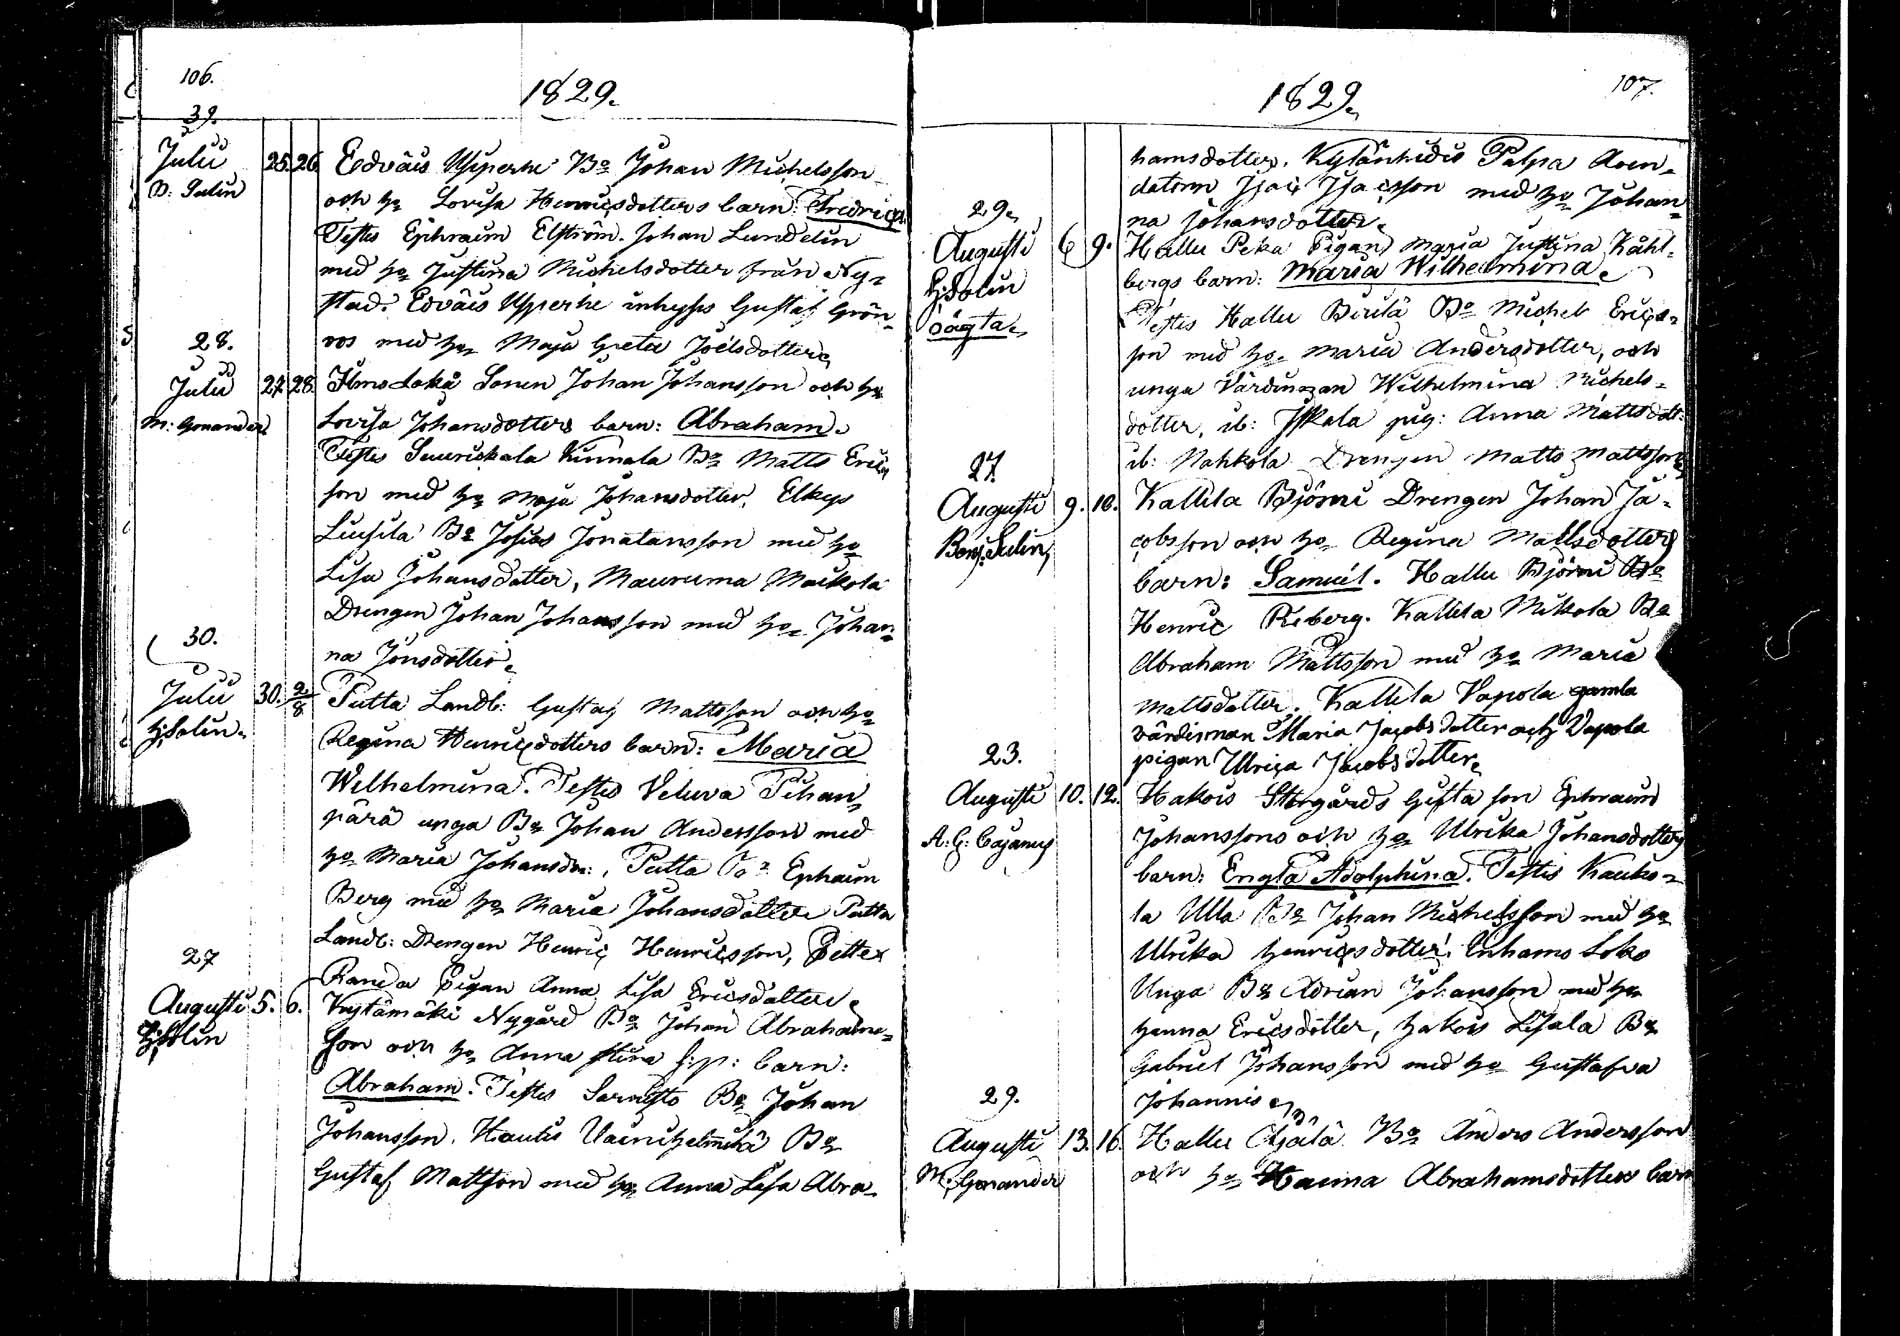 106.
1829.
39.
Julii 25. 26. Edväis Ypperhe Bo Johan Michelsson
B: Salin och ho Lovisa Henricsdotters barn: Fredrica
Testes Ephraim Elström. Johan Lundelin
med ho Justina Michelsdotter från Ny-
stad. Edväis Ypperhe inhyses Gustaf Grön-
28.
ros med ho Maja Greta Joelsdotter
Julii 27 28. Johan Johansson och ho
M: Gonander Lovisa Johansdotters barn: Abraham.
Testes Suurikkala Kinnala Bo Matts Eric
son med ho Maja Johansdotter, Elkys
Bo Josias Jonatansson med ho
Lisa Johansdotter, Mauruma Maikola
Drengen Johan Johansson med ho Johan-
30.
na Jonsdotter.
Julii 30. 2/8 Putta Landb: Gustaf Mattsson och ho
H: Salin. Regina Henricsdotters barn: Maria
Wilhelmina. Testes Veluva Pihan-
pärä unga Bo Johan Andersson med
ho Maria Johansdr:, Putta Bo Ephaim
Berg med ho Maria Johansdotter Putta
Landb: Drengen Henric Henricsson, Putta
27
Randa Pigan Anna Lisa Ericsdotter
Augusti 5. 6. Kytämäki Nygård Bo Johan Abraham-
H: Salin son och ho Anna Stina barn:
Abraham. Testes Sarvisto Bo Johan
Johansson. Hautis Vainihelmihi Bo
Gustaf Mattsson med ho Anna Lisa Abra-
107.
1829.
hamsdotter. Kylänhidis Palpa Aren-
datorn Isac Isacsson med ho Johan-
29.
na Johansdotter.
Augusti 6 9. Hallu Peka Pigan Maria Justina Kåhl-
H: Salin bergs barn: Maria Wilhelmina.
oägta. Testes Hallu Birilä Bo Michel Erics-
son med ho Maria Andersdotter, och
unga Värdinnan Wilhelmina Michels-
dotter, ib: Iskala pig: Anna Mattsdot:
27.
ib: Nahkola Drengen Matts Mattsson
Augusti 9. 10. Kallela Björni Drengen Johan Ja-
Benj: Salin cobsson och ho Regina Mattsdotters
barn: Samuel. Hallu Björni Bo
Henric Reberg. Kallela Mikola Bo
Abraham Mattsson med ho Maria
Mattsdotter. Kallela Vapola gamla
värdinnan Maria Jacobsdotter och Vapola
23.
pigan Ulrica Jacobsdotter.
Augusti 10. 12. Hakois Storgårds Gusta son Ephraim
A: G: Cajanus Johanssons och ho Ulrika Johansdotters
barn: Engla Adolphina. Testes Kauko-
la Ulla Bo Johan Michelsson med ho
Ulrika Henricsdotter. Loko
Unga Bo Adrian Johansson med ho
Hanna Ericsdotter, Hakois Bo
Gabriel Johansson med ho Gustafva
29.
Johannis
Augusti 13. 16. Hallu Bo Anders Andersson
M: Gonander och ho Hanna Abrahamsdotters barn